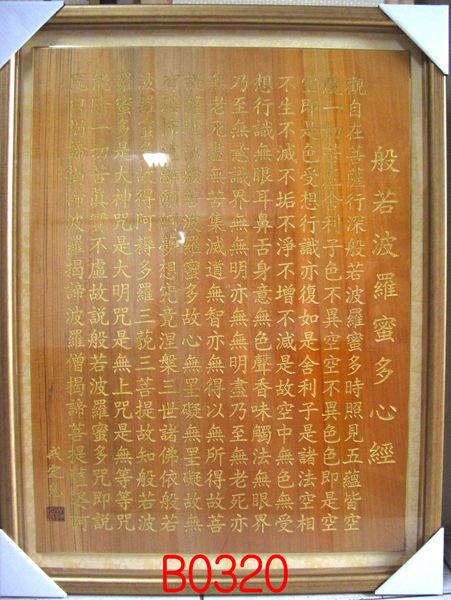 般若波羅蜜多心經
觀自在菩薩行深般若波羅蜜多時照見五蘊皆空
度一切苦厄舍利子色不異空空不異色色即是空
空即是色受想行識亦復如是舍利子是諸法空相
不生不滅不垢不淨不增不減是故空中無色無受
想行識無眼耳鼻舌身意無色聲香味觸法無眼界
乃至無意識界無無明亦無無明盡乃至無老死亦
無老死盡無苦集滅道無智亦無得以無所得故菩
提薩埵依般若波羅蜜多故心無罣礙無罣礙故無
有恐怖遠離顛倒夢想究竟涅槃三世諸佛依般若
波羅蜜多故得阿耨多羅三藐三菩提故知般若波
羅蜜多是大神咒是大明咒是無上咒是無等等咒
能除一切苦真實不虛故說般若波羅蜜多咒即說
咒曰揭諦揭諦波羅揭諦波羅僧揭諦菩提薩婆訶
B0320